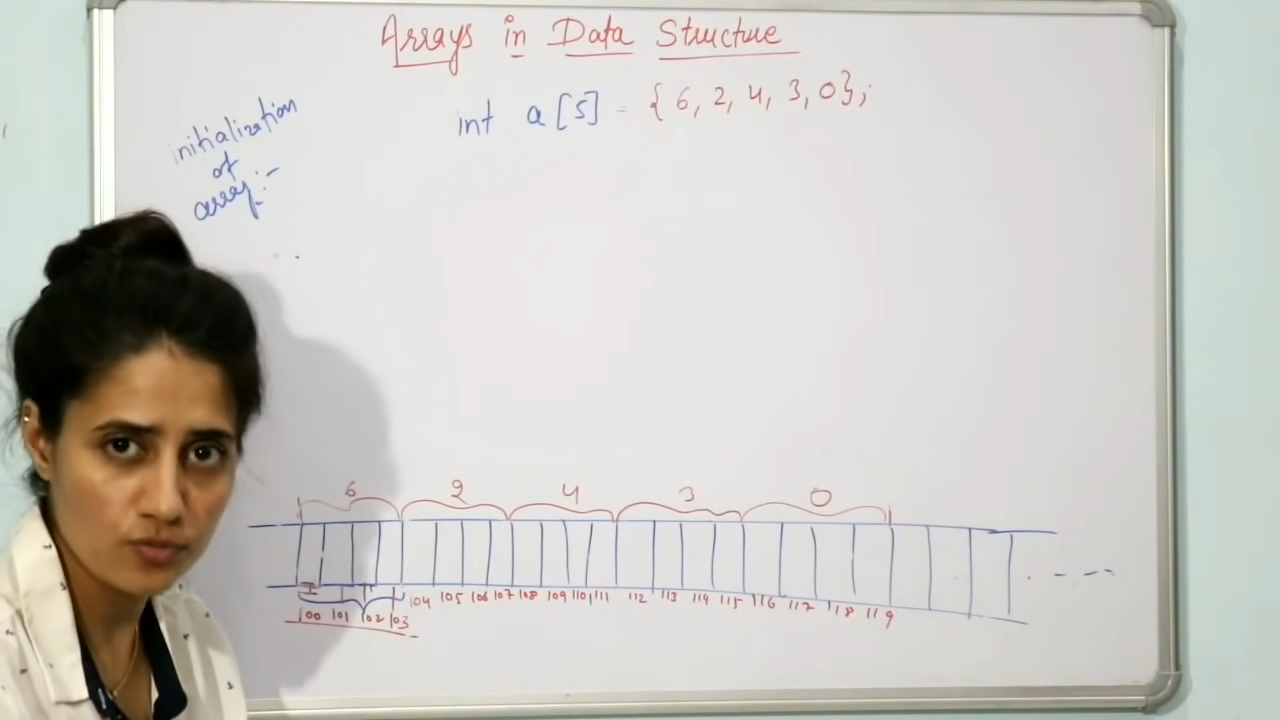 Arrays in Data Structure
int a[5] = {6, 2, 4, 3, 0};
initialization
of
array:-
6 2 4 3 0
100 101 102 103 104 105 106 107 108 109 110 111 112 113 114 115 116 117 118 119